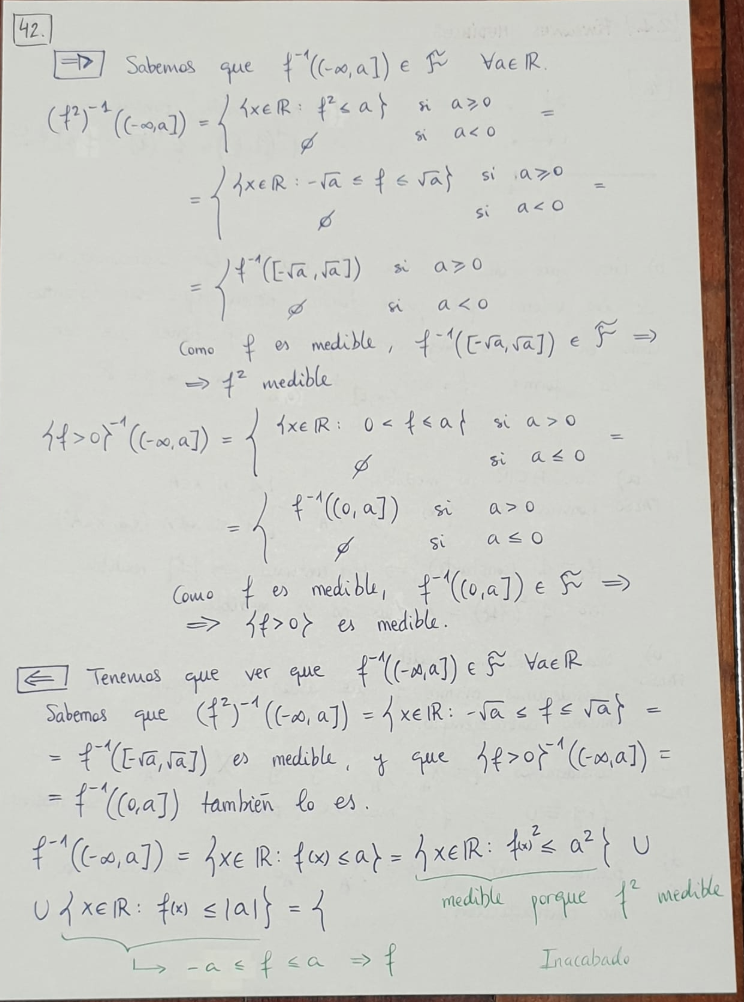 42.
⟹ Sabemos que f⁻¹((-∞,a]) ∈ 𝓕̃ ∀a∈ℝ.
(f²)⁻¹((-∞,a]) = { {x∈ℝ: f² ≤ a} si a⩾0 =
∅ si a<0
= { {x∈ℝ: -√a ≤ f ≤ √a} si a⩾0 =
∅ si a<0
= { f⁻¹([-√a,√a]) si a⩾0
∅ si a<0
Como f es medible, f⁻¹([-√a,√a]) ∈ 𝓕̃ ⟹
⟹ f² medible
{f>0}⁻¹((-∞,a]) = { {x∈ℝ: 0 < f ≤ a} si a>0 =
∅ si a≤0
= { f⁻¹((0,a]) si a>0
∅ si a≤0
Como f es medible, f⁻¹((0,a]) ∈ 𝓕̃ ⟹
⟹ {f>0} es medible.
⟸ Tenemos que ver que f⁻¹((-∞,a]) ∈ 𝓕̃ ∀a∈ℝ
Sabemos que (f²)⁻¹((-∞,a]) = {x∈ℝ: -√a ≤ f ≤ √a} =
= f⁻¹([-√a,√a]) es medible, y que {f>0}⁻¹((-∞,a]) =
= f⁻¹((0,a]) también lo es.
f⁻¹((-∞,a]) = {x∈ℝ: f(x) ≤ a} = {x∈ℝ: f(x)² ≤ a²} ∪
medible porque f² medible
∪ {x∈ℝ: f(x) ≤ |a|} = {
↳ -a ≤ f ≤ a ⟹ f
Inacabado